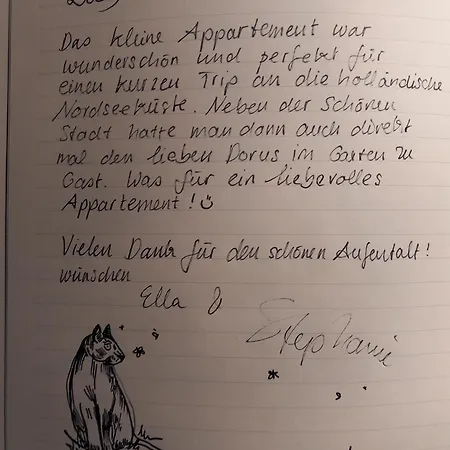 Das kleine Appartement war
wunderschön und perfekt für
einen kurzen Trip an die holländische
Nordseeküste. Neben der schönen
Stadt hatte man dann auch direkt
mal den lieben Dorus im Garten zu
Gast. Was für ein liebevolles
Appartement!
Vielen Dank für den schönen Aufentalt!
wünschen
Ella &
Stephanie